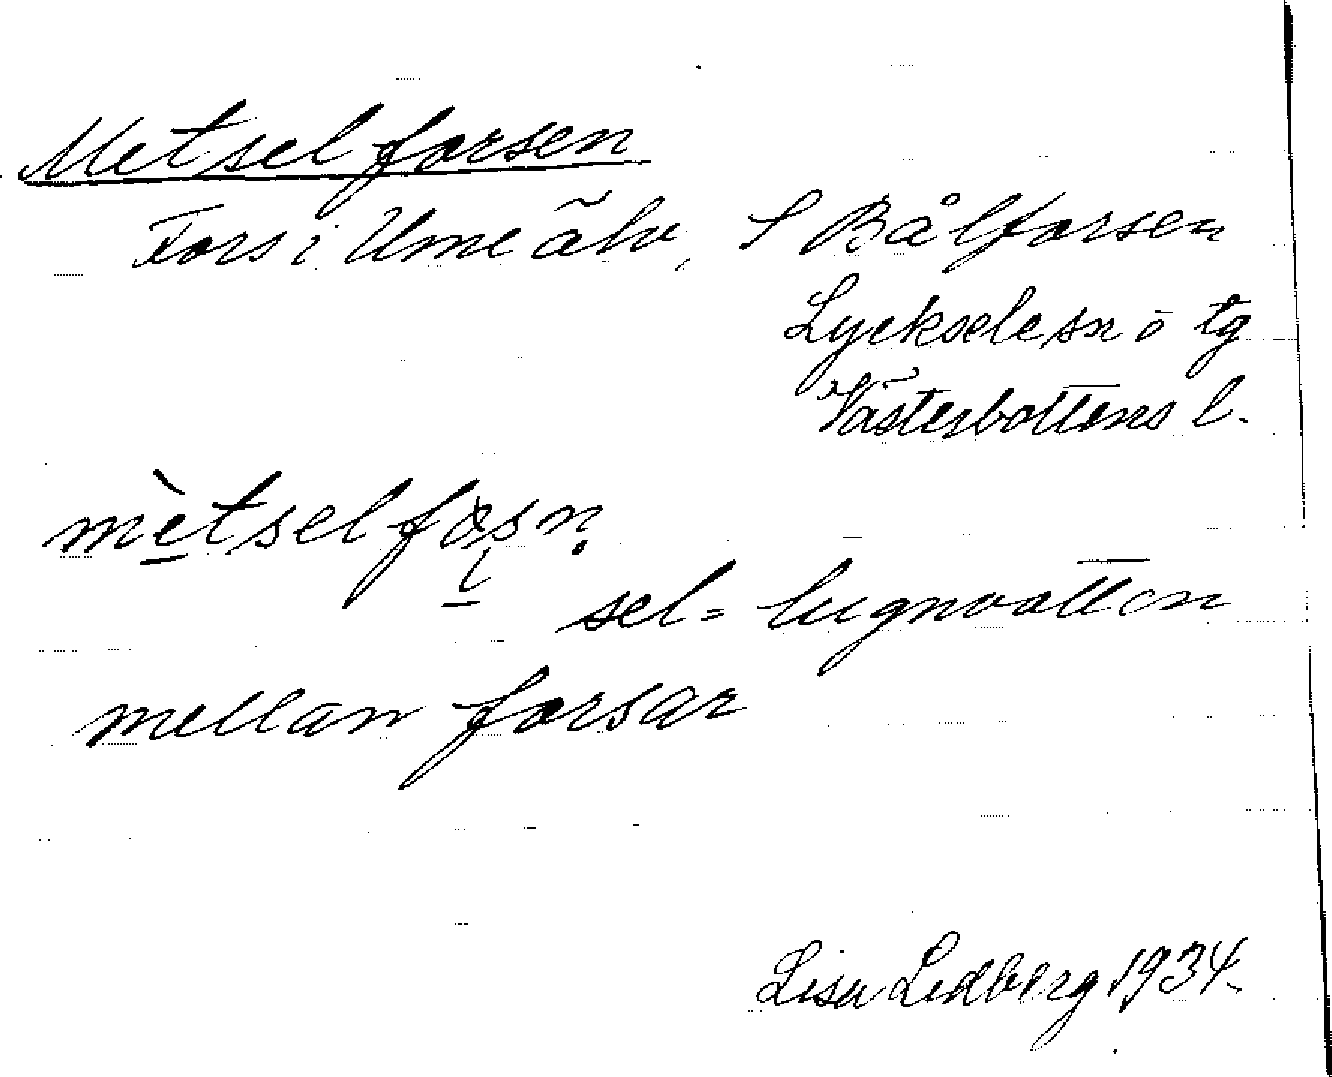 Metselforsen
Fors i Ume älv, S Bålforsen
Lycksele sn o tg
Västerbottens l.
mètselfåsn
sel = lugnvatten
mellan forsar
Lisa Lidberg 1934